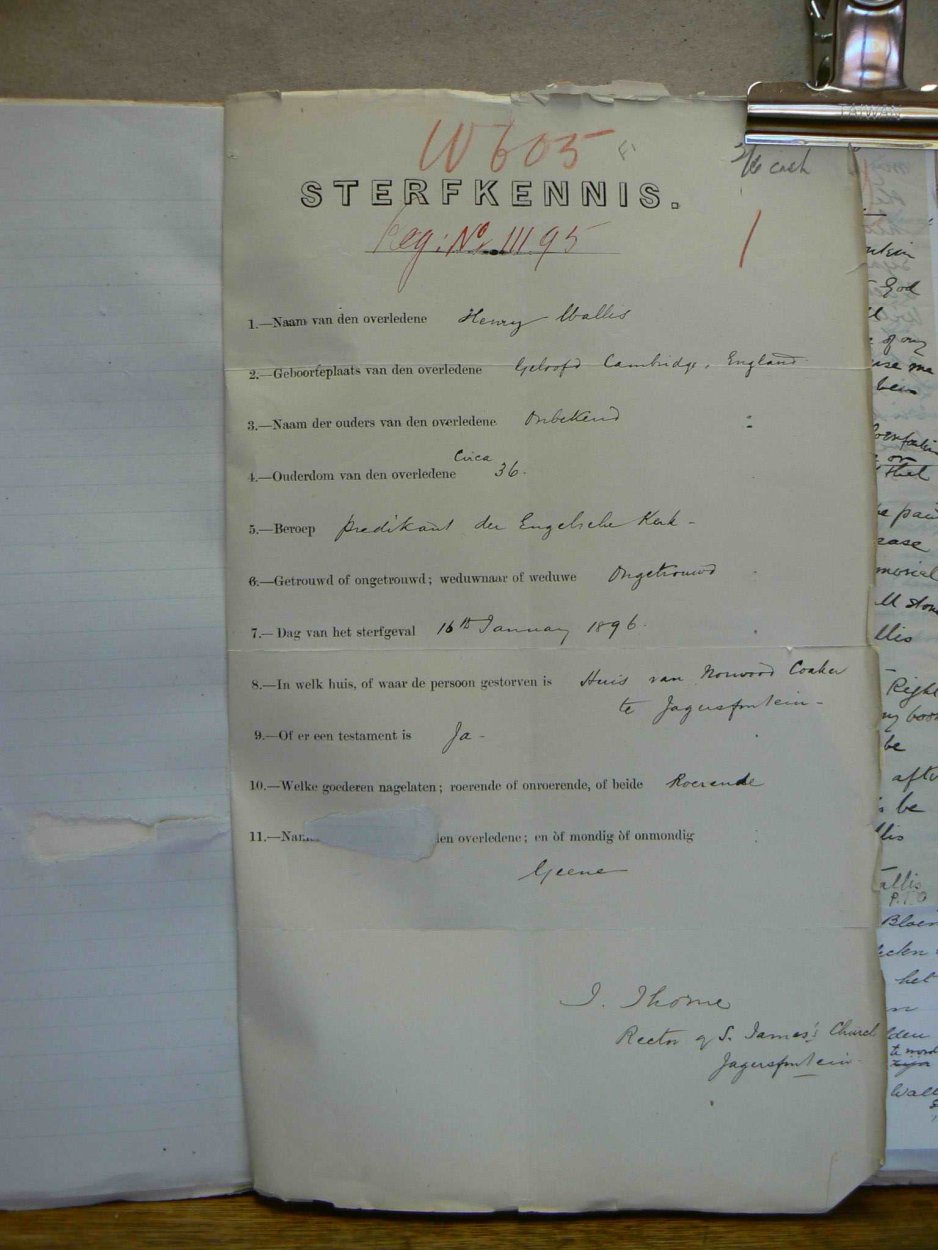 TAIWAN
W 605
2/6 cash
STERFKENNIS.
Reg: No. 11195
1
1.—Naam van den overledene Henry Wallis
2.—Geboorteplaats van den overledene Geloofd Cambridge, England
3.—Naam der ouders van den overledene Onbekend
4.—Ouderdom van den overledene Circa 36.
5.—Beroep predikant der Engelsche Kerk -
6.—Getrouwd of ongetrouwd; weduwnaar of weduwe Ongetrouwd
7.—Dag van het sterfgeval 16th January 1896.
8.—In welk huis, of waar de persoon gestorven is Huis van Norwood Coaker
te Jagersfontein -
9.—Of er een testament is Ja -
10.—Welke goederen nagelaten; roerende of onroerende, of beide Roerende
11.—Na den overledene; en òf mondig òf onmondig
Geene
I. Thorne
Rector of S. James's Church
Jagersfontein
God
of my
been
be pai
ease
morial
ll ston
llis
Right
my boo
be
afte
be
llis
allis
P.T.O
Bloem
het
lden
te
Wall